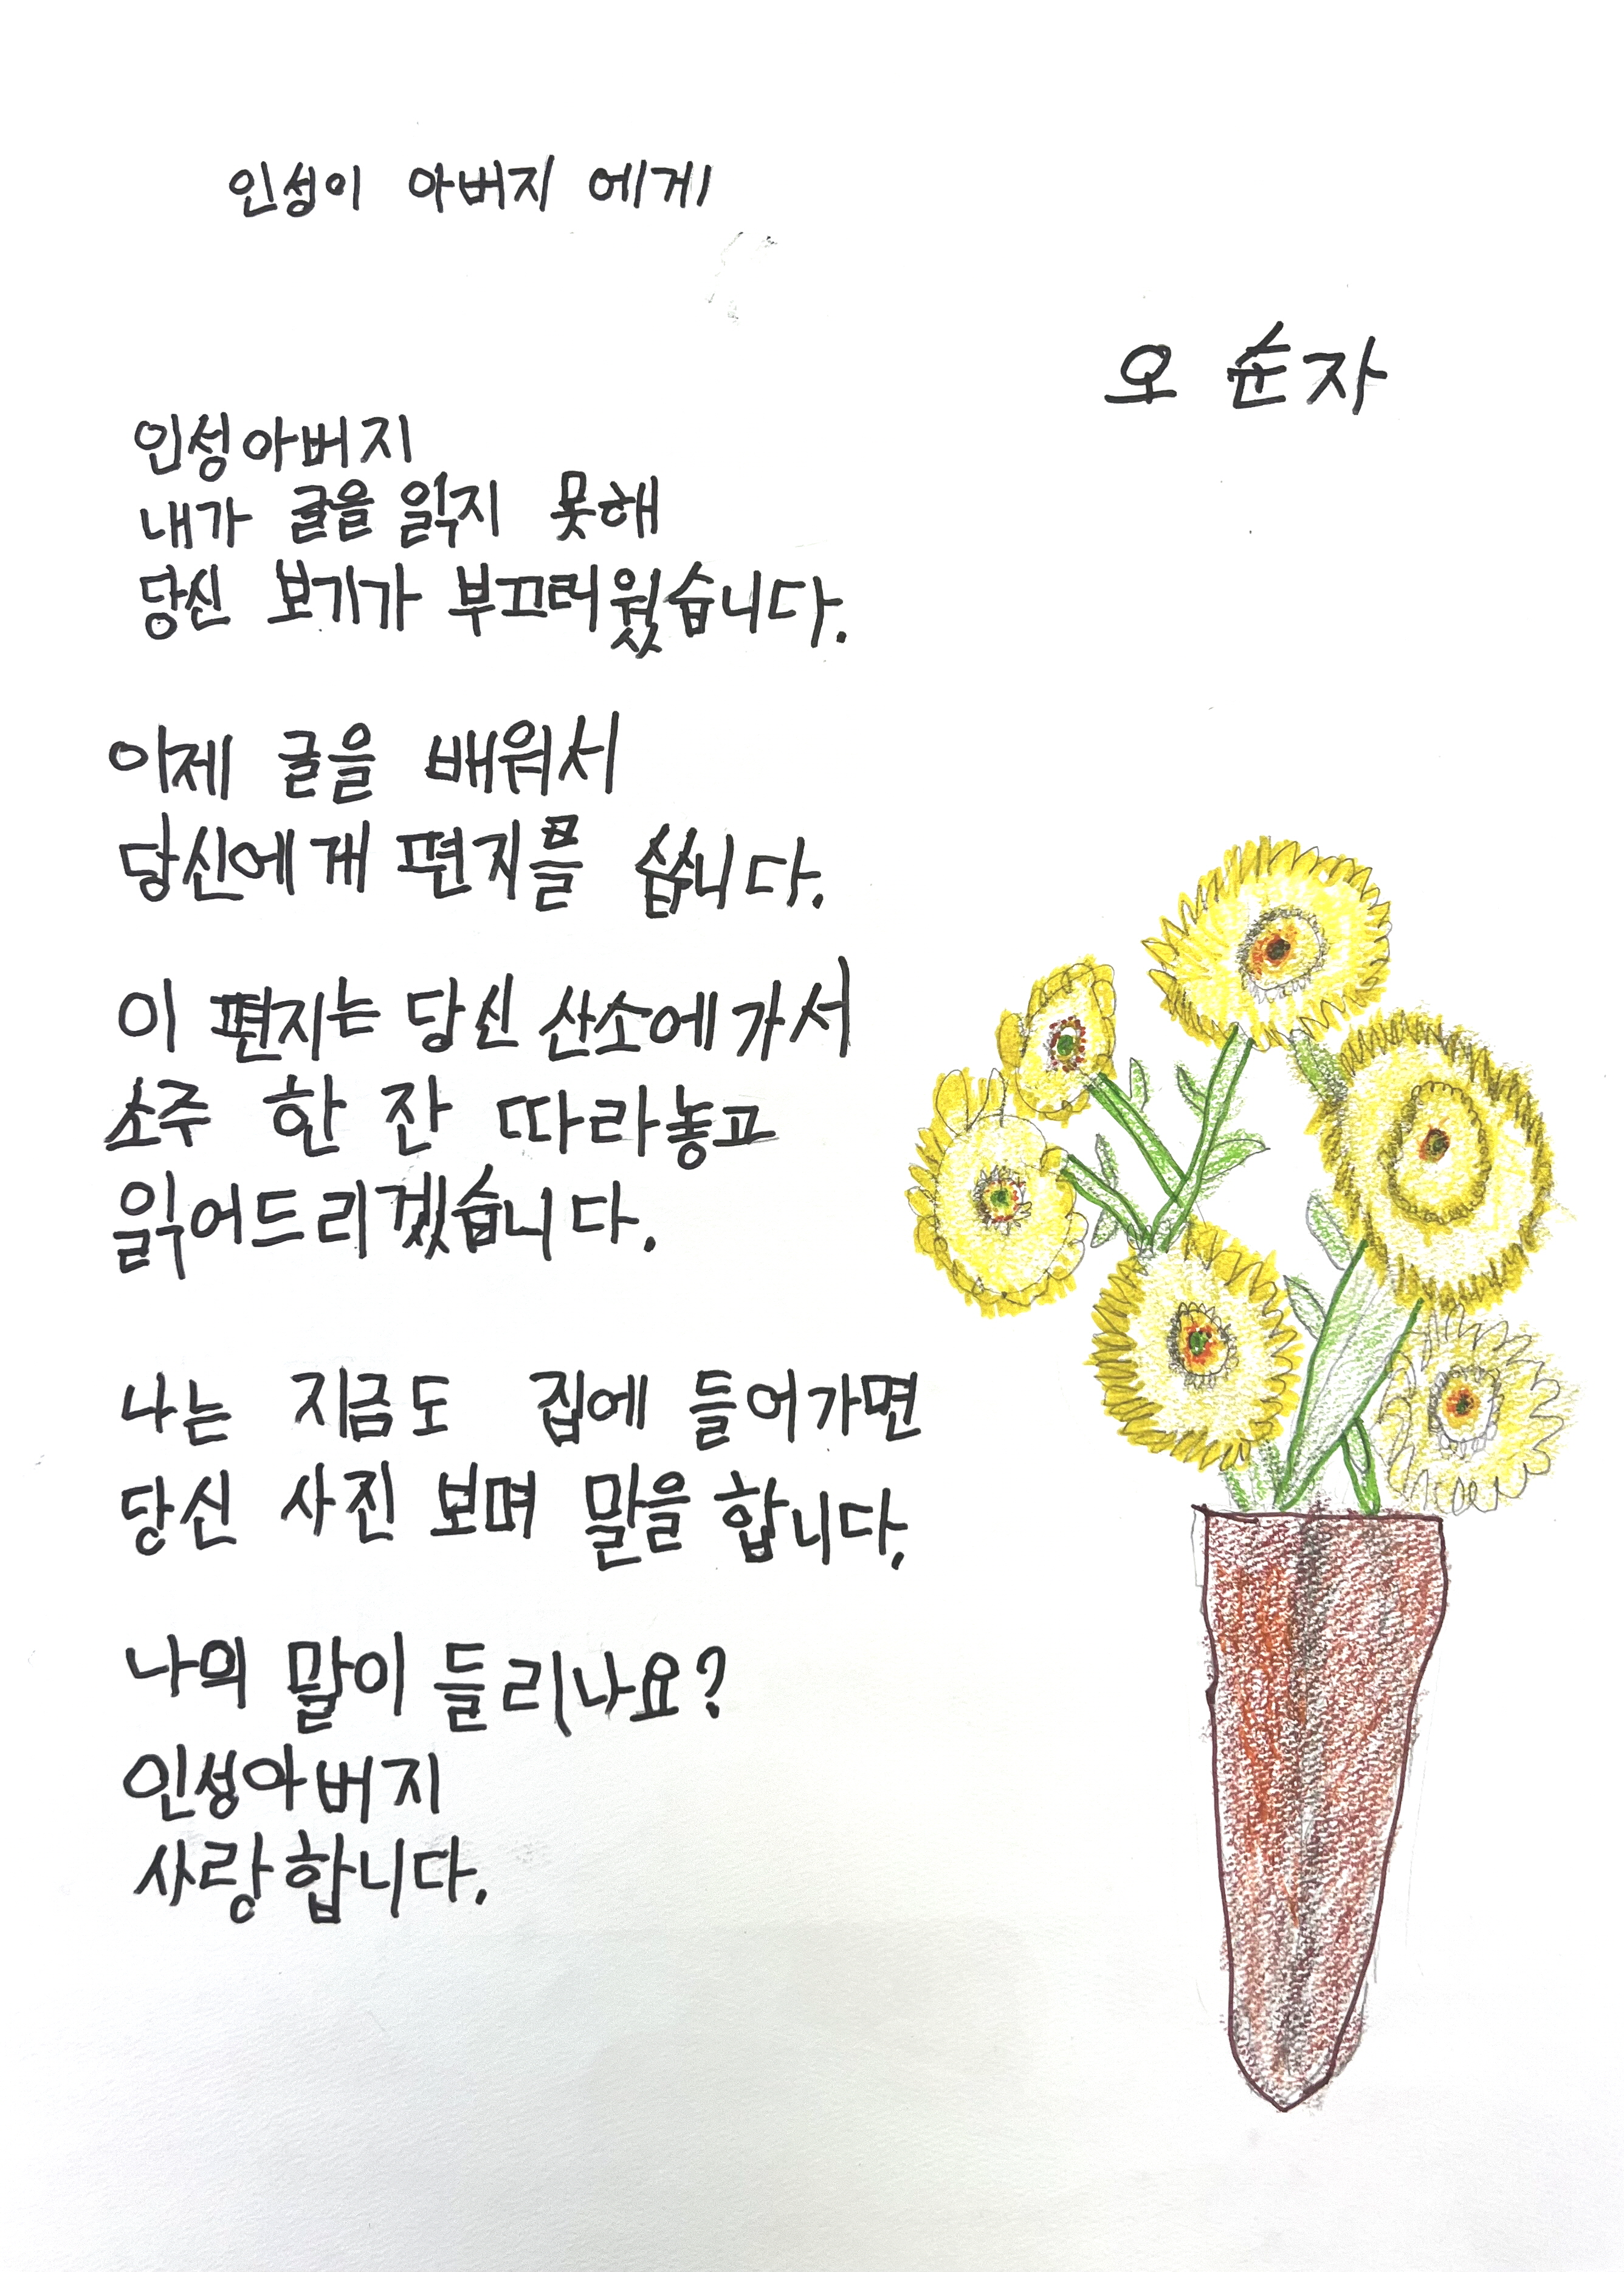 인성이 아버지 에게
오 순자
인성아버지
내가 글을 읽지 못해
당신 보기가 부끄러웠습니다.
이제 글을 배워서
당신에개 편지를 씁니다.
이 편지는 당신 산소에가서
소주 한 잔 따라놓고
읽어드리겠습니다.
나는 지금도 집에 들어가면
당신 사진 보며 말을 합니다.
나의 말이 들리나요?
인성아버지
사랑합니다.